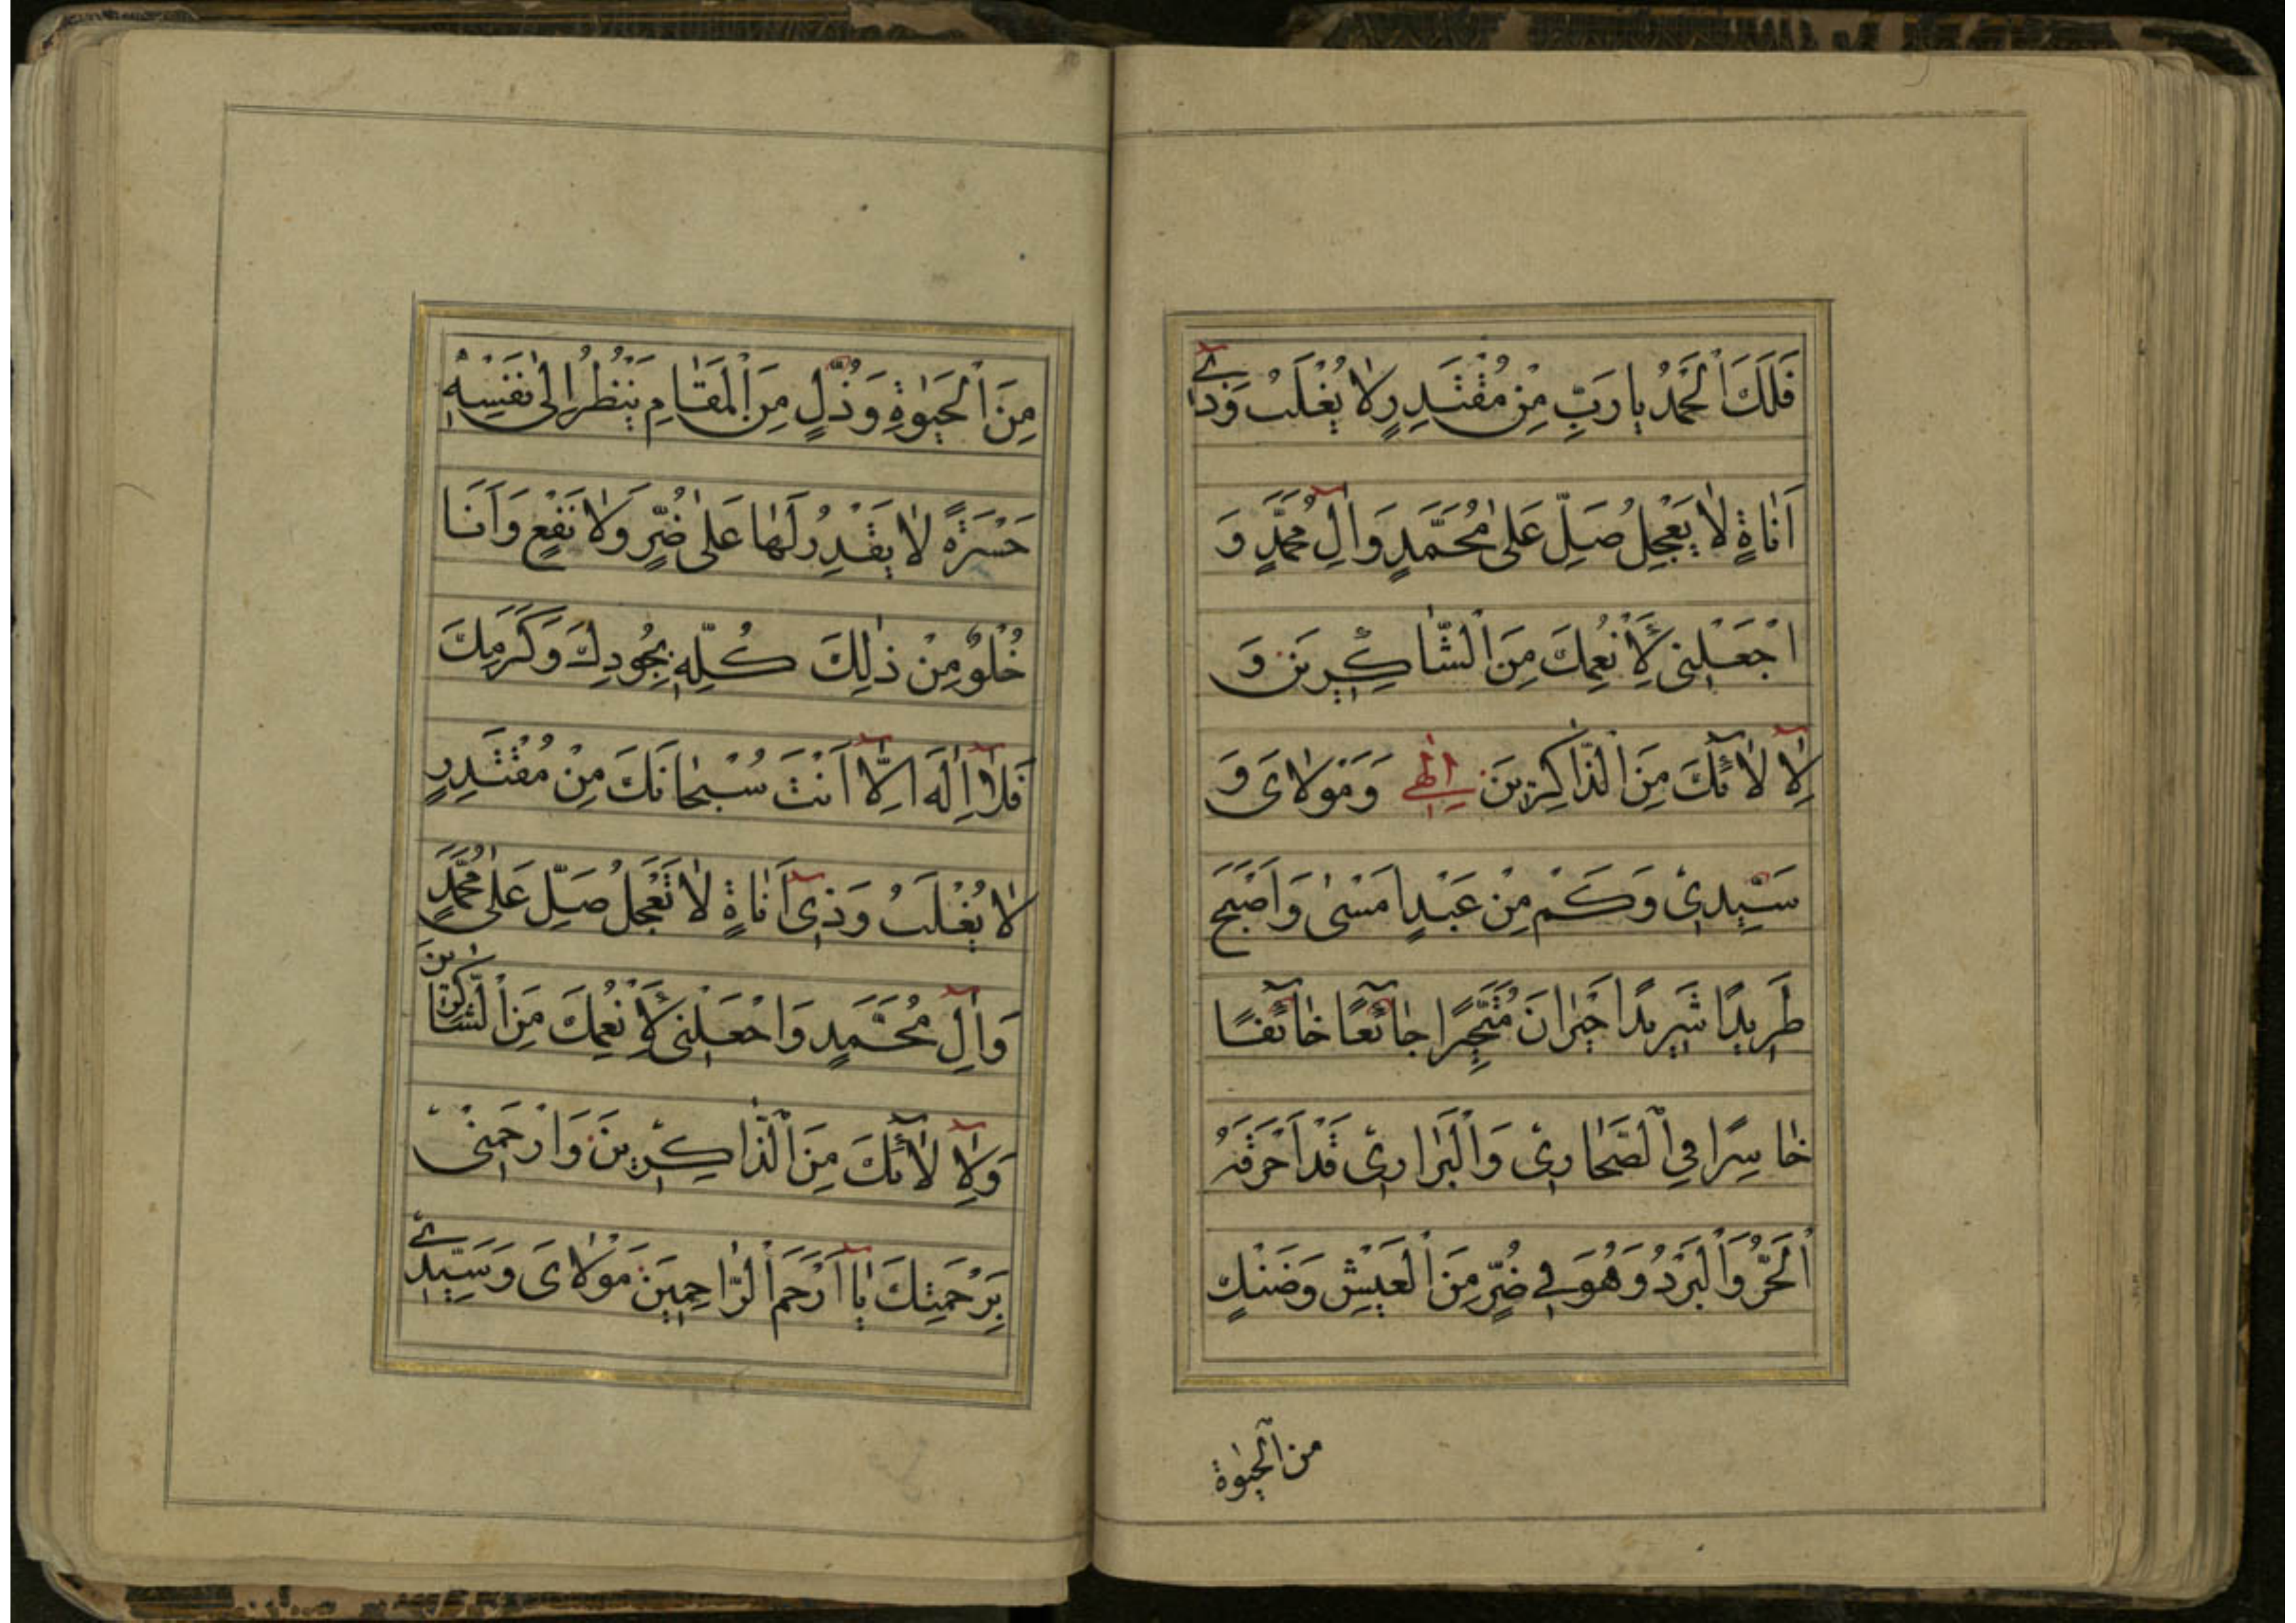 فَلَكَ الْحَمْدُ يا رَبِّ مِنْ مُقْتَدِرٍ لا يُغْلَبُ وَذي
اَناةٍ لا يَعْجِلُ صَلِّ عَلى مُحَمَّدٍ وَآلِ مُحَمَّدٍ وَ
اجْعَلْنى لِأَنْعُمِكَ مِنَ الشّاكِرينَ وَ
لِآلآئِكَ مِنَ الذّاكِرينَ اِلهى وَمَوْلاىَ وَ
سَيِّدِيْ وَكَمْ مِنْ عَبْدٍ اَمْسى وَاَصْبَحَ
طَريدًا شَريدًا حَيْرانَ مُتَحَيِّرًا جآئِعًا خآئِفًا
خاسِرًا فِي الصَّحارِيْ وَالْبَرارِيْ قَدْ اَحْرَقَهُ
اَلْحَرُّ وَالْبَرْدُ وَهُوَ في ضُرٍّ مِنَ الْعَيْشِ وَضَنْكٍ
من الحيوة
مِنَ الْحَيوةِ وَذُلٍّ مِنَ الْمَقامِ يَنْظُرُ اِلى نَفْسِهِ
حَسْرَةً لا يَقْدِرُ لَها عَلى ضُرٍّ وَلا نَفْعٍ وَاَنَا
خُلْوٌ مِنْ ذلِكَ كُلِّهِ بِجُودِكَ وَكَرَمِكَ
فَلا اِلهَ اِلّا اَنْتَ سُبْحانَكَ مِنْ مُقْتَدِرٍ
لا يُغْلَبُ وَذي اَناةٍ لا تَعْجَلُ صَلِّ عَلى مُحَمَّدٍ
وَآلِ مُحَمَّدٍ وَاجْعَلْنى لِأَنْعُمِكَ مِنَ الشّاكِرينَ
وَلِآلآئِكَ مِنَ الذّاكِرينَ وَارْحَمْنى
بِرَحْمَتِكَ يا اَرْحَمَ الرّاحِمينَ مَوْلاىَ وَسَيِّدي